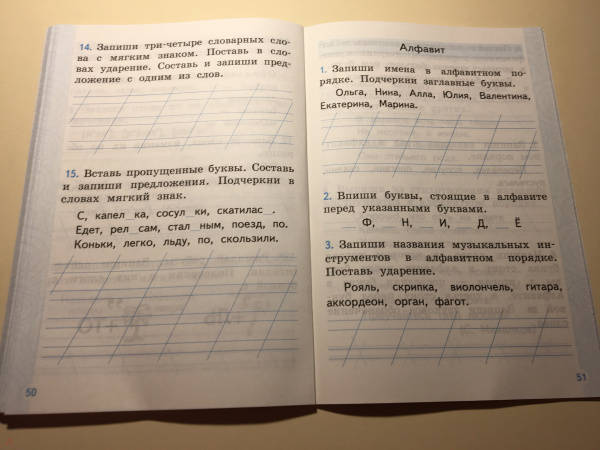 14. Запиши три-четыре словарных сло-
ва с мягким знаком. Поставь в сло-
вах ударение. Составь и запиши пред-
ложение с одним из слов.
15. Вставь пропущенные буквы. Составь
и запиши предложения. Подчеркни в
словах мягкий знак.
С, капел_ка, сосул_ки, скатилас_.
Едет, рел_сам, стал_ным, поезд, по.
Коньки, легко, льду, по, скользили.
50
Алфавит
1. Запиши имена в алфавитном по-
рядке. Подчеркни заглавные буквы.
Ольга, Нина, Алла, Юлия, Валентина,
Екатерина, Марина.
2. Впиши буквы, стоящие в алфавите
перед указанными буквами.
_ Ф, _ Н, _ И, _ Д, _ Ё
3. Запиши названия музыкальных ин-
струментов в алфавитном порядке.
Поставь ударение.
Рояль, скрипка, виолончель, гитара,
аккордеон, орган, фагот.
51